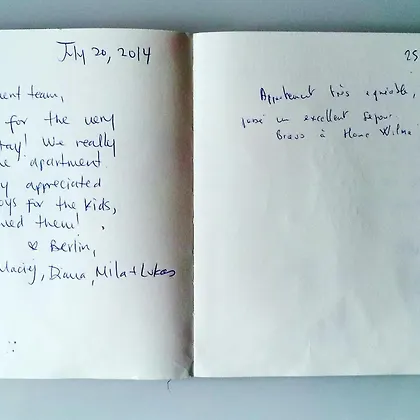 July 20, 2014
ent team,
for the very
tay! We really
e apartment.
y appreciated
oys for the kids,
ned them!
& Berlin,
Maciej, Diana, Mila + Lukas
25
Appartement très agréable,
passé un excellent séjour
Bravo à Home Wilma